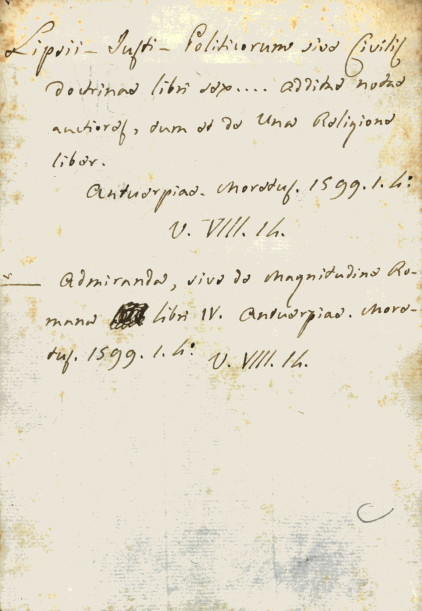 Lipsii - Justi - Politicorum sive Civilis
doctrinae libri sex.... additae notae
auctiores, tum et de Una Religione
liber.
Antuerpiae. Moretus. 1599. 1. 4:
V. VIII. 14.
— Admiranda, sive de Magnitudine Ro-
mana libri IV. Antuerpiae. More-
tus. 1599. 1. 4: V. VIII. 14.